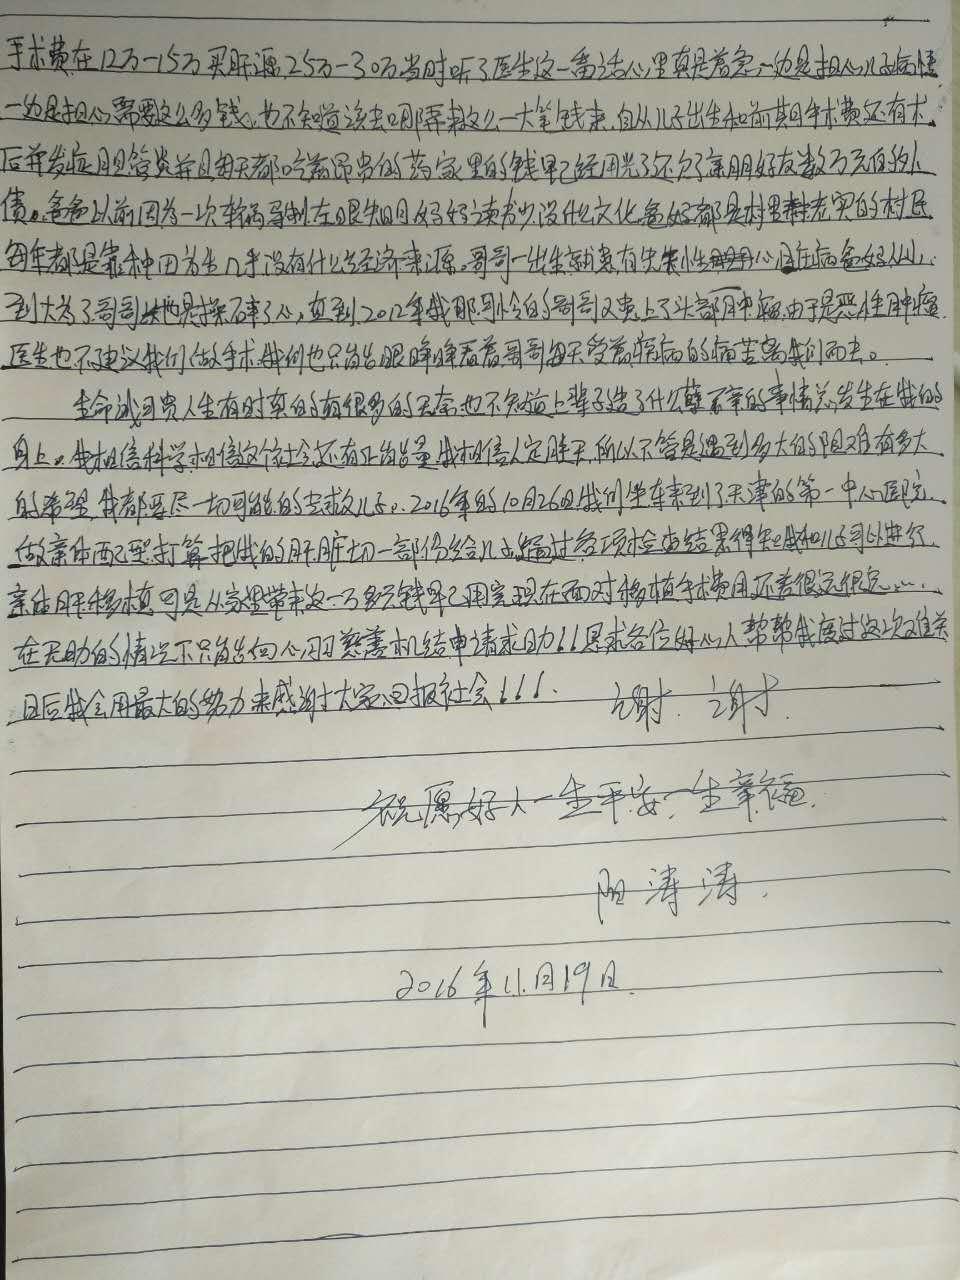 手术费在12万一15万买肝源25万一30万当时听了医生这一番话心里真是着急,一边是担心儿子病情
一边是担心需要这么多钱,也不知道该去哪弄来这么一大笔钱来,自从儿子出生和前期手术费还有术
后并发症胆管炎并且每天都吃着昂贵的药家里的钱早已经用光了还欠了亲朋好友数万元的外
债。爸爸以前因为一次车祸导制左眼失明妈妈读书少没什么文化爸妈都是村里老实的村民
每年都是靠种田为生几乎没有什么经济来源。哥哥一出生就患有先天性心脏病爸妈从小
到大为了哥哥也是操碎了心,直到2012年我那可怜的哥哥又患上了头部肿瘤,由于是恶性肿瘤
医生也不建议我们做手术,我们也只能眼睁睁看着哥哥每天受着病的痛苦离我们而去。
生命诚可贵人生有时真的有很多的无奈,也不知道上辈子造了什么孽不幸的事情总发生在我的
身上。我相信科学相信这个社会还有正能量,我相信人定胜天,所以不管是遇到多大的阻难有多大
的希望,我都要尽一切可能的去救儿子。2016年的10月26日我们坐车来到了天津的第一中心医院
做亲体配型打算把我的肝脏切一部份给儿子,通过各项检查结果得知我和儿子可以进行
亲体肝移植,可是从家里带来这一万多元钱早已用完现在面对移植手术费用还差很远很远……
在无助的情况下只能向心司慈善机结申请求助!!恳求各位好心人帮帮我度过这次难关
日后我会用最大的努力来感谢大家回报社会!!!
谢谢.
祝愿好人一生平安,一生幸福.
阳涛涛.
2016年11月19日.